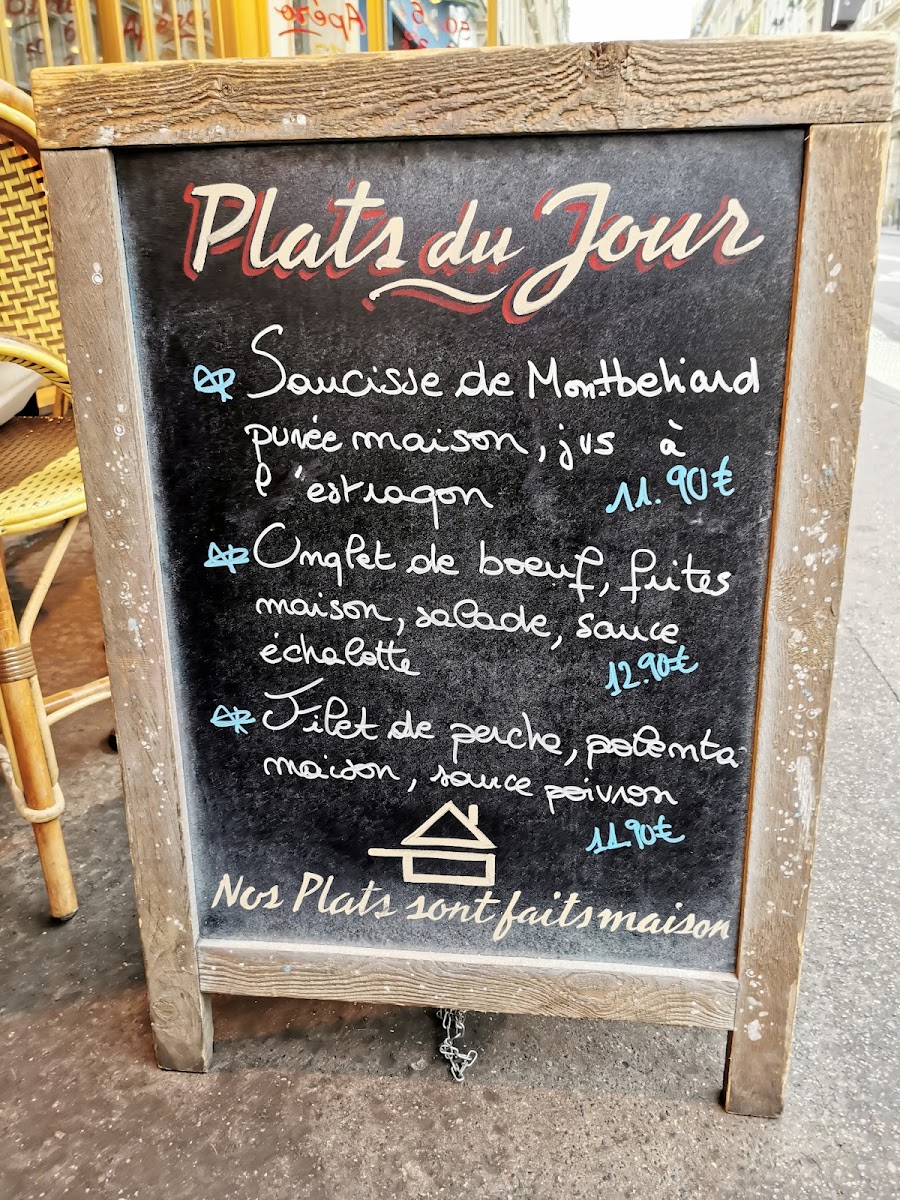 Apéro
Plats du Jour
Saucisse de Montbeliard
purée maison, jus à
l'estragon 11.90€
Onglet de boeuf, frites
maison, salade, sauce
échalotte 12.90€
Filet de perche, polenta
maison, sauce poivron
11.90€
Nos Plats sont faits maison